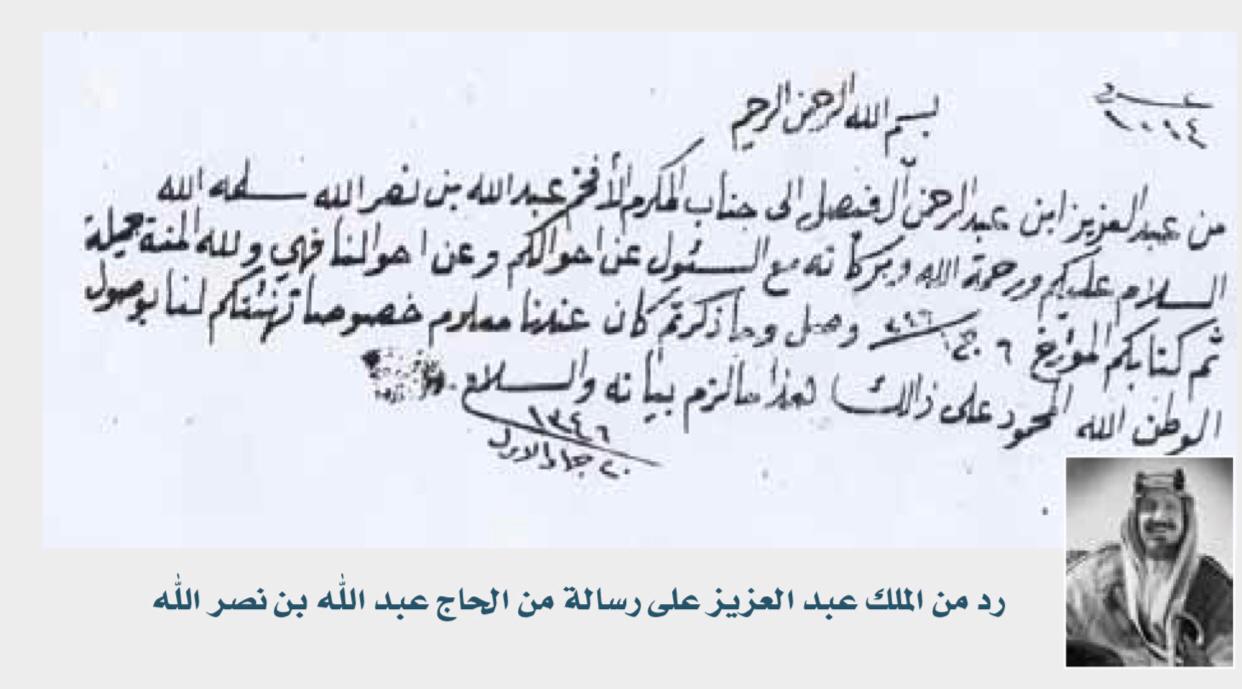 عدد
١٠١٤
بسم الله الرحمن الرحيم
من عبدالعزيز ابن عبدالرحمن آل فيصل الى جناب المكرم الأفخم عبدالله بن نصر الله سلمه الله
السلام عليكم ورحمة الله وبركاته مع السئول عن احوالكم وعن احوالنا فهي ولله المنة جميلة
ثم كتابكم المؤرخ ٦ وصل وما ذكرتم كان عندنا معلوم خصوصا تهنئتكم لنا بوصول
الوطن الله المحمود على ذالك هذا مالزم بيانه والسلام
١٣٤٦
٢٠ جماد الاول
رد من الملك عبد العزيز على رسالة من الحاج عبد الله بن نصر الله